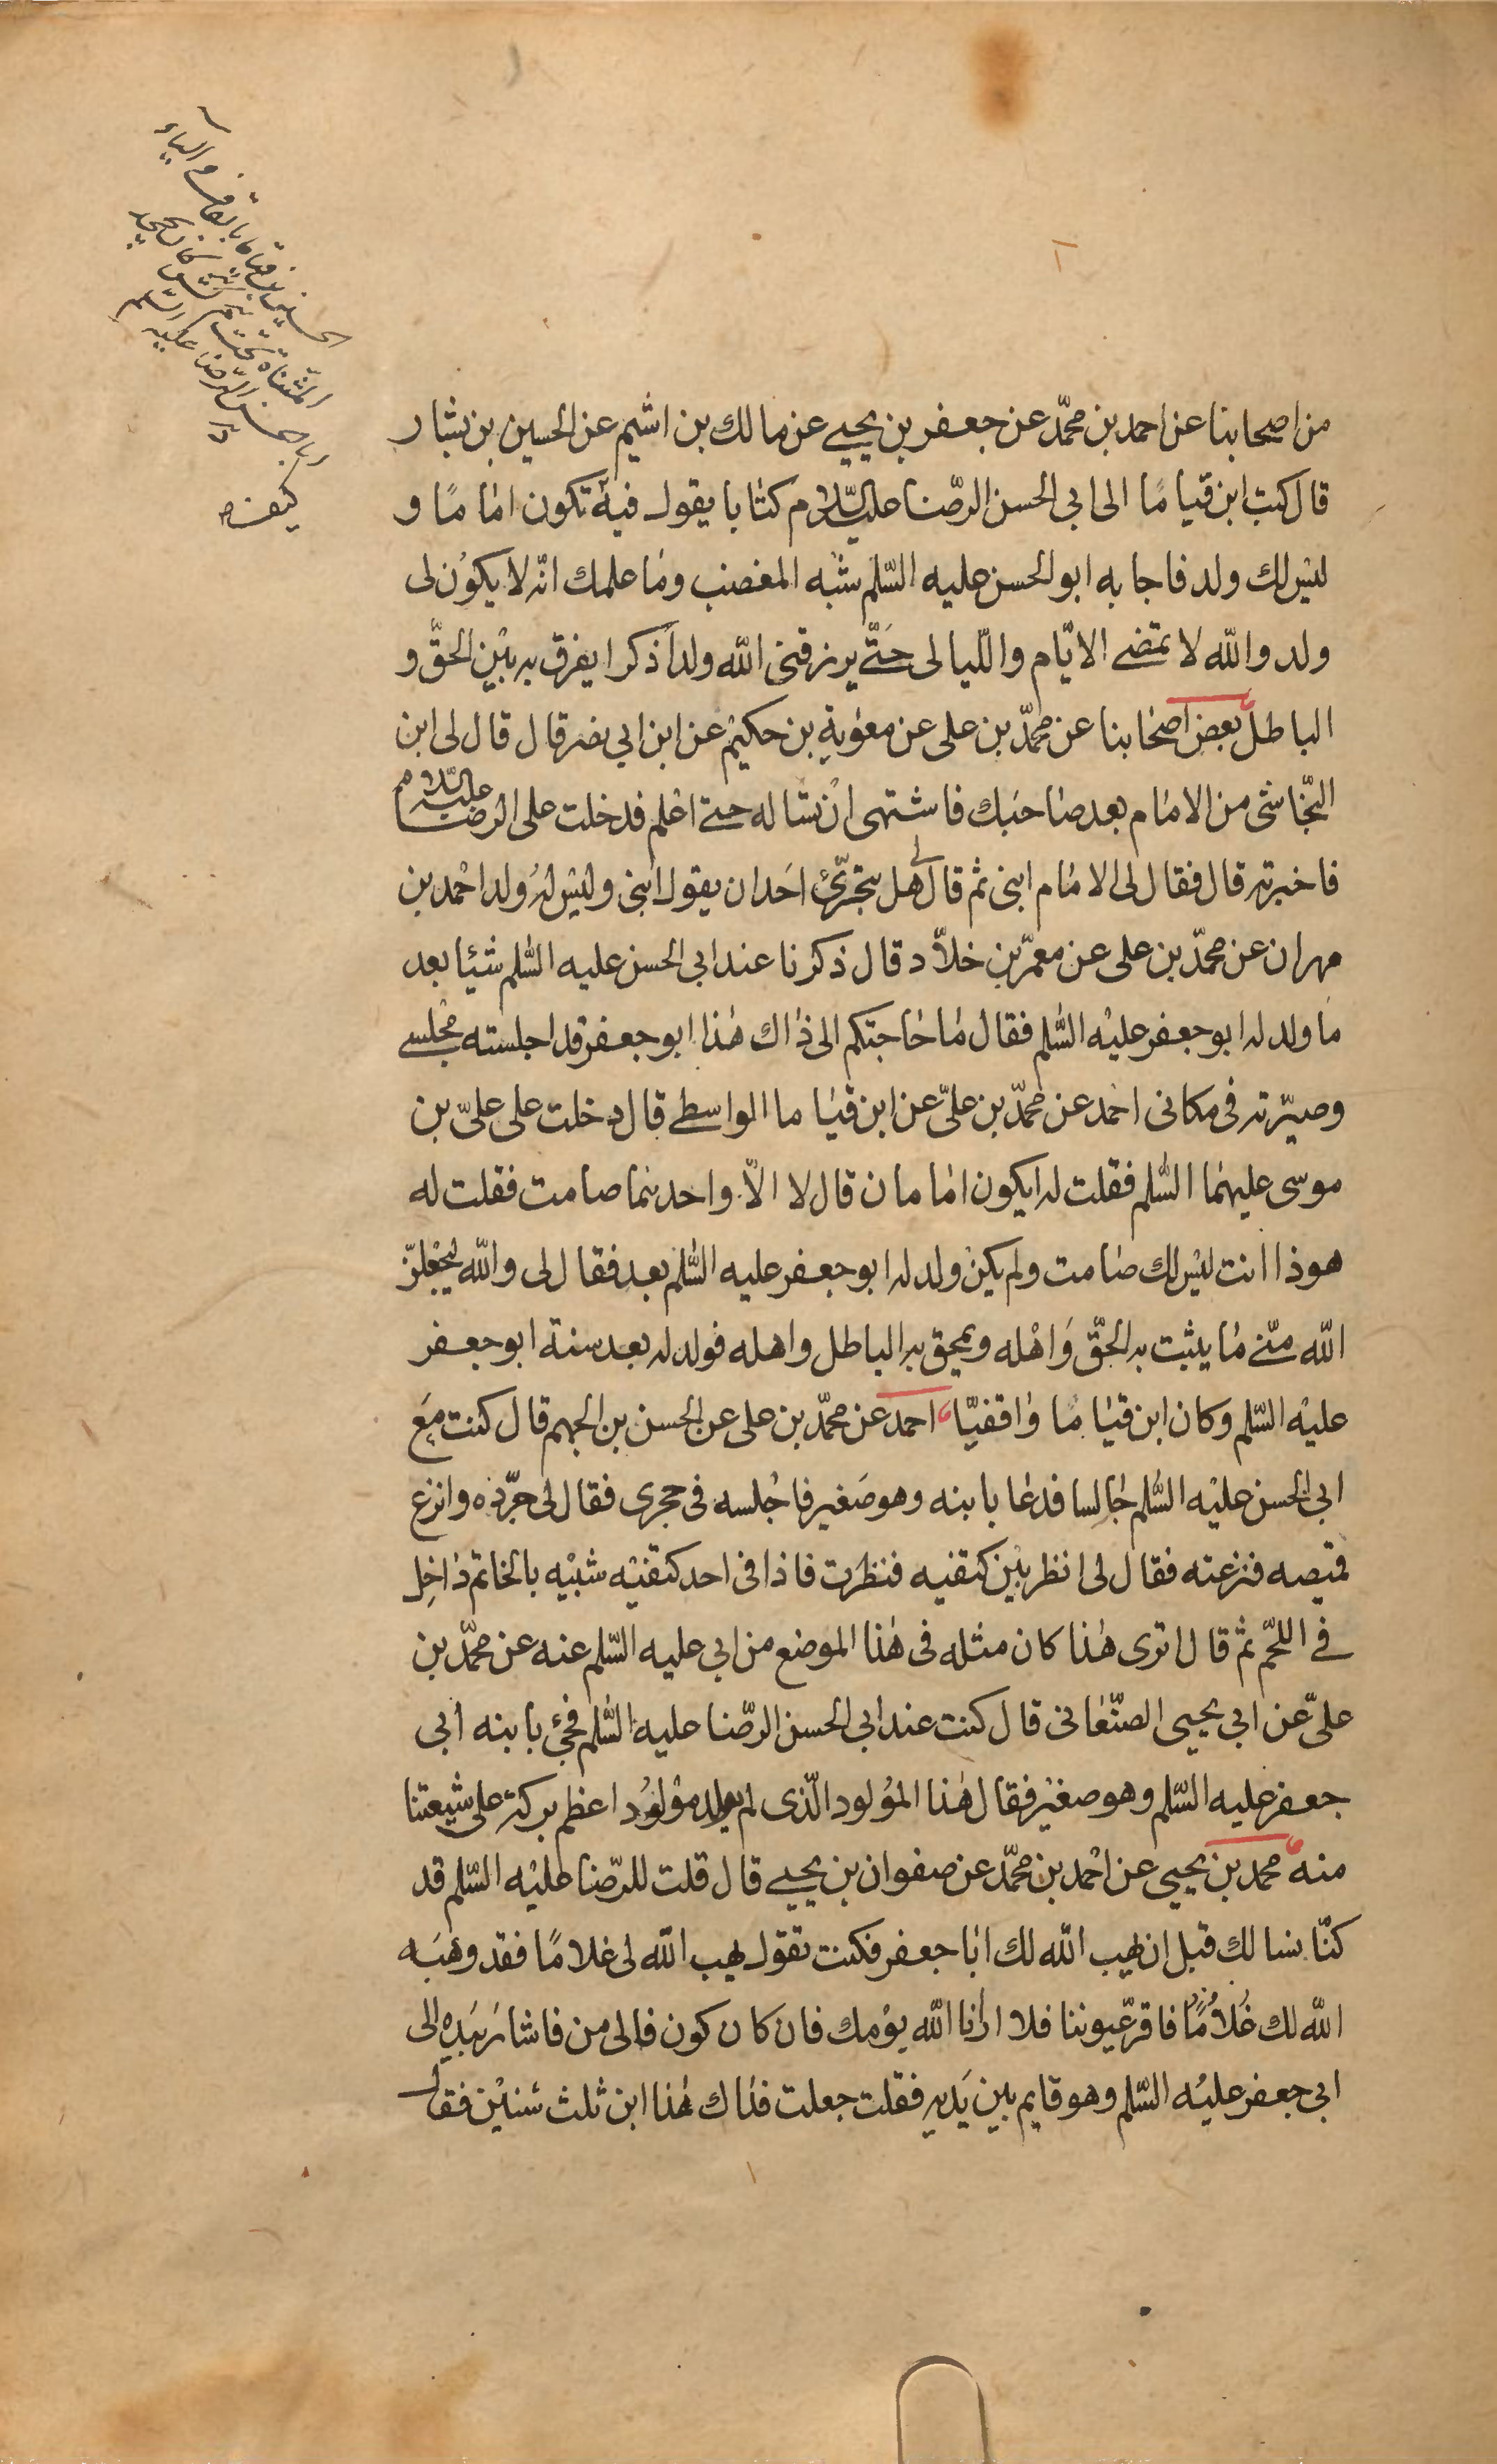 من اصحابنا عن احمد بن محمّد عن جعفر بن يحيى عن مالك بن اشيم عن الحسين بن بشار
قال كتب ابن قياما الى ابى الحسن الرّضا عليه السّلام كتابا يقول فيه تكون اماما و
ليس لك ولد فاجابه ابو الحسن عليه السّلم شبه المغضب وما علمك انّه لا يكون لى
ولد والله لا تمضى الايّام واللّيالى حتّى يرزقنى الله ولدا ذكرا يفرق به بين الحقّ و
الباطل بعض اصحابنا عن محمّد بن على عن معوية بن حكيم عن ابن ابى نصر قال قال لى ابن
النّجاشى من الامام بعد صاحبك فاشتهى ان تساله حتى اعلم فدخلت على الرضا عليه السّلام
فاخبرته قال فقال لى الامام ابنى ثم قال لى هل يتجرّئ احد ان يقول ابنى وليس له ولد احمد بن
مهران عن محمّد بن على عن معمّر بن خلاّد قال ذكرنا عند ابى الحسن عليه السّلم شيئا بعد
ما ولد له ابو جعفر عليه السّلم فقال ما حاجتكم الى ذاك هذا ابو جعفر قد اجلسته مجلسى
وصيّرته فى مكانى احمد عن محمّد بن علىّ عن ابن قياما الواسطى قال دخلت على علىّ بن
موسى عليهما السّلم فقلت له ايكون امامان قال لا الاّ واحدهما صامت فقلت له
هو ذا انت ليس لك صامت ولم يكن ولد له ابو جعفر عليه السّلم بعد فقال لى والله ليجعلنّ
الله منّى ما يثبت به الحقّ واهله ويمحق به الباطل واهله فولد له بعد سنة ابو جعفر
عليه السّلم وكان ابن قياما واقفيّا احمد عن محمّد بن على عن الحسن بن الجهم قال كنت مع
ابى الحسن عليه السّلم جالسا فدعا بابنه وهو صغير فاجلسه فى حجرى فقال لى جرّده وانزع
قميصه فنزعته فقال لى انظر بين كتفيه فنظرت فاذا فى احد كتفيه شبيه بالخاتم داخل
فى اللحم ثم قال اترى هذا كان مثله فى هذا الموضع من ابى عليه السّلم عنه عن محمّد بن
علىّ عن ابى يحيى الصنّعانى قال كنت عند ابى الحسن الرّضا عليه السّلم فجئ بابنه ابى
جعفر عليه السّلم وهو صغير فقال هذا المولود الّذى لم يولد مولود اعظم بركة على شيعتنا
منه محمد بن يحيى عن احمد بن محمّد عن صفوان بن يحيى قال قلت للرّضا عليه السّلم قد
كنّا نسالك قبل ان يهب الله لك ابا جعفر فكنت تقول يهب الله لى غلاما فقد وهبه
الله لك غلاما فاقرّ عيوننا فلا ارانا الله يومك فان كان كون فالى من فاشار بيده الى
ابى جعفر عليه السّلم وهو قايم بين يديه فقلت جعلت فداك هذا ابن ثلث سنين فقال
الحسين بن قياما بالقاف والياء
المثناة تحت